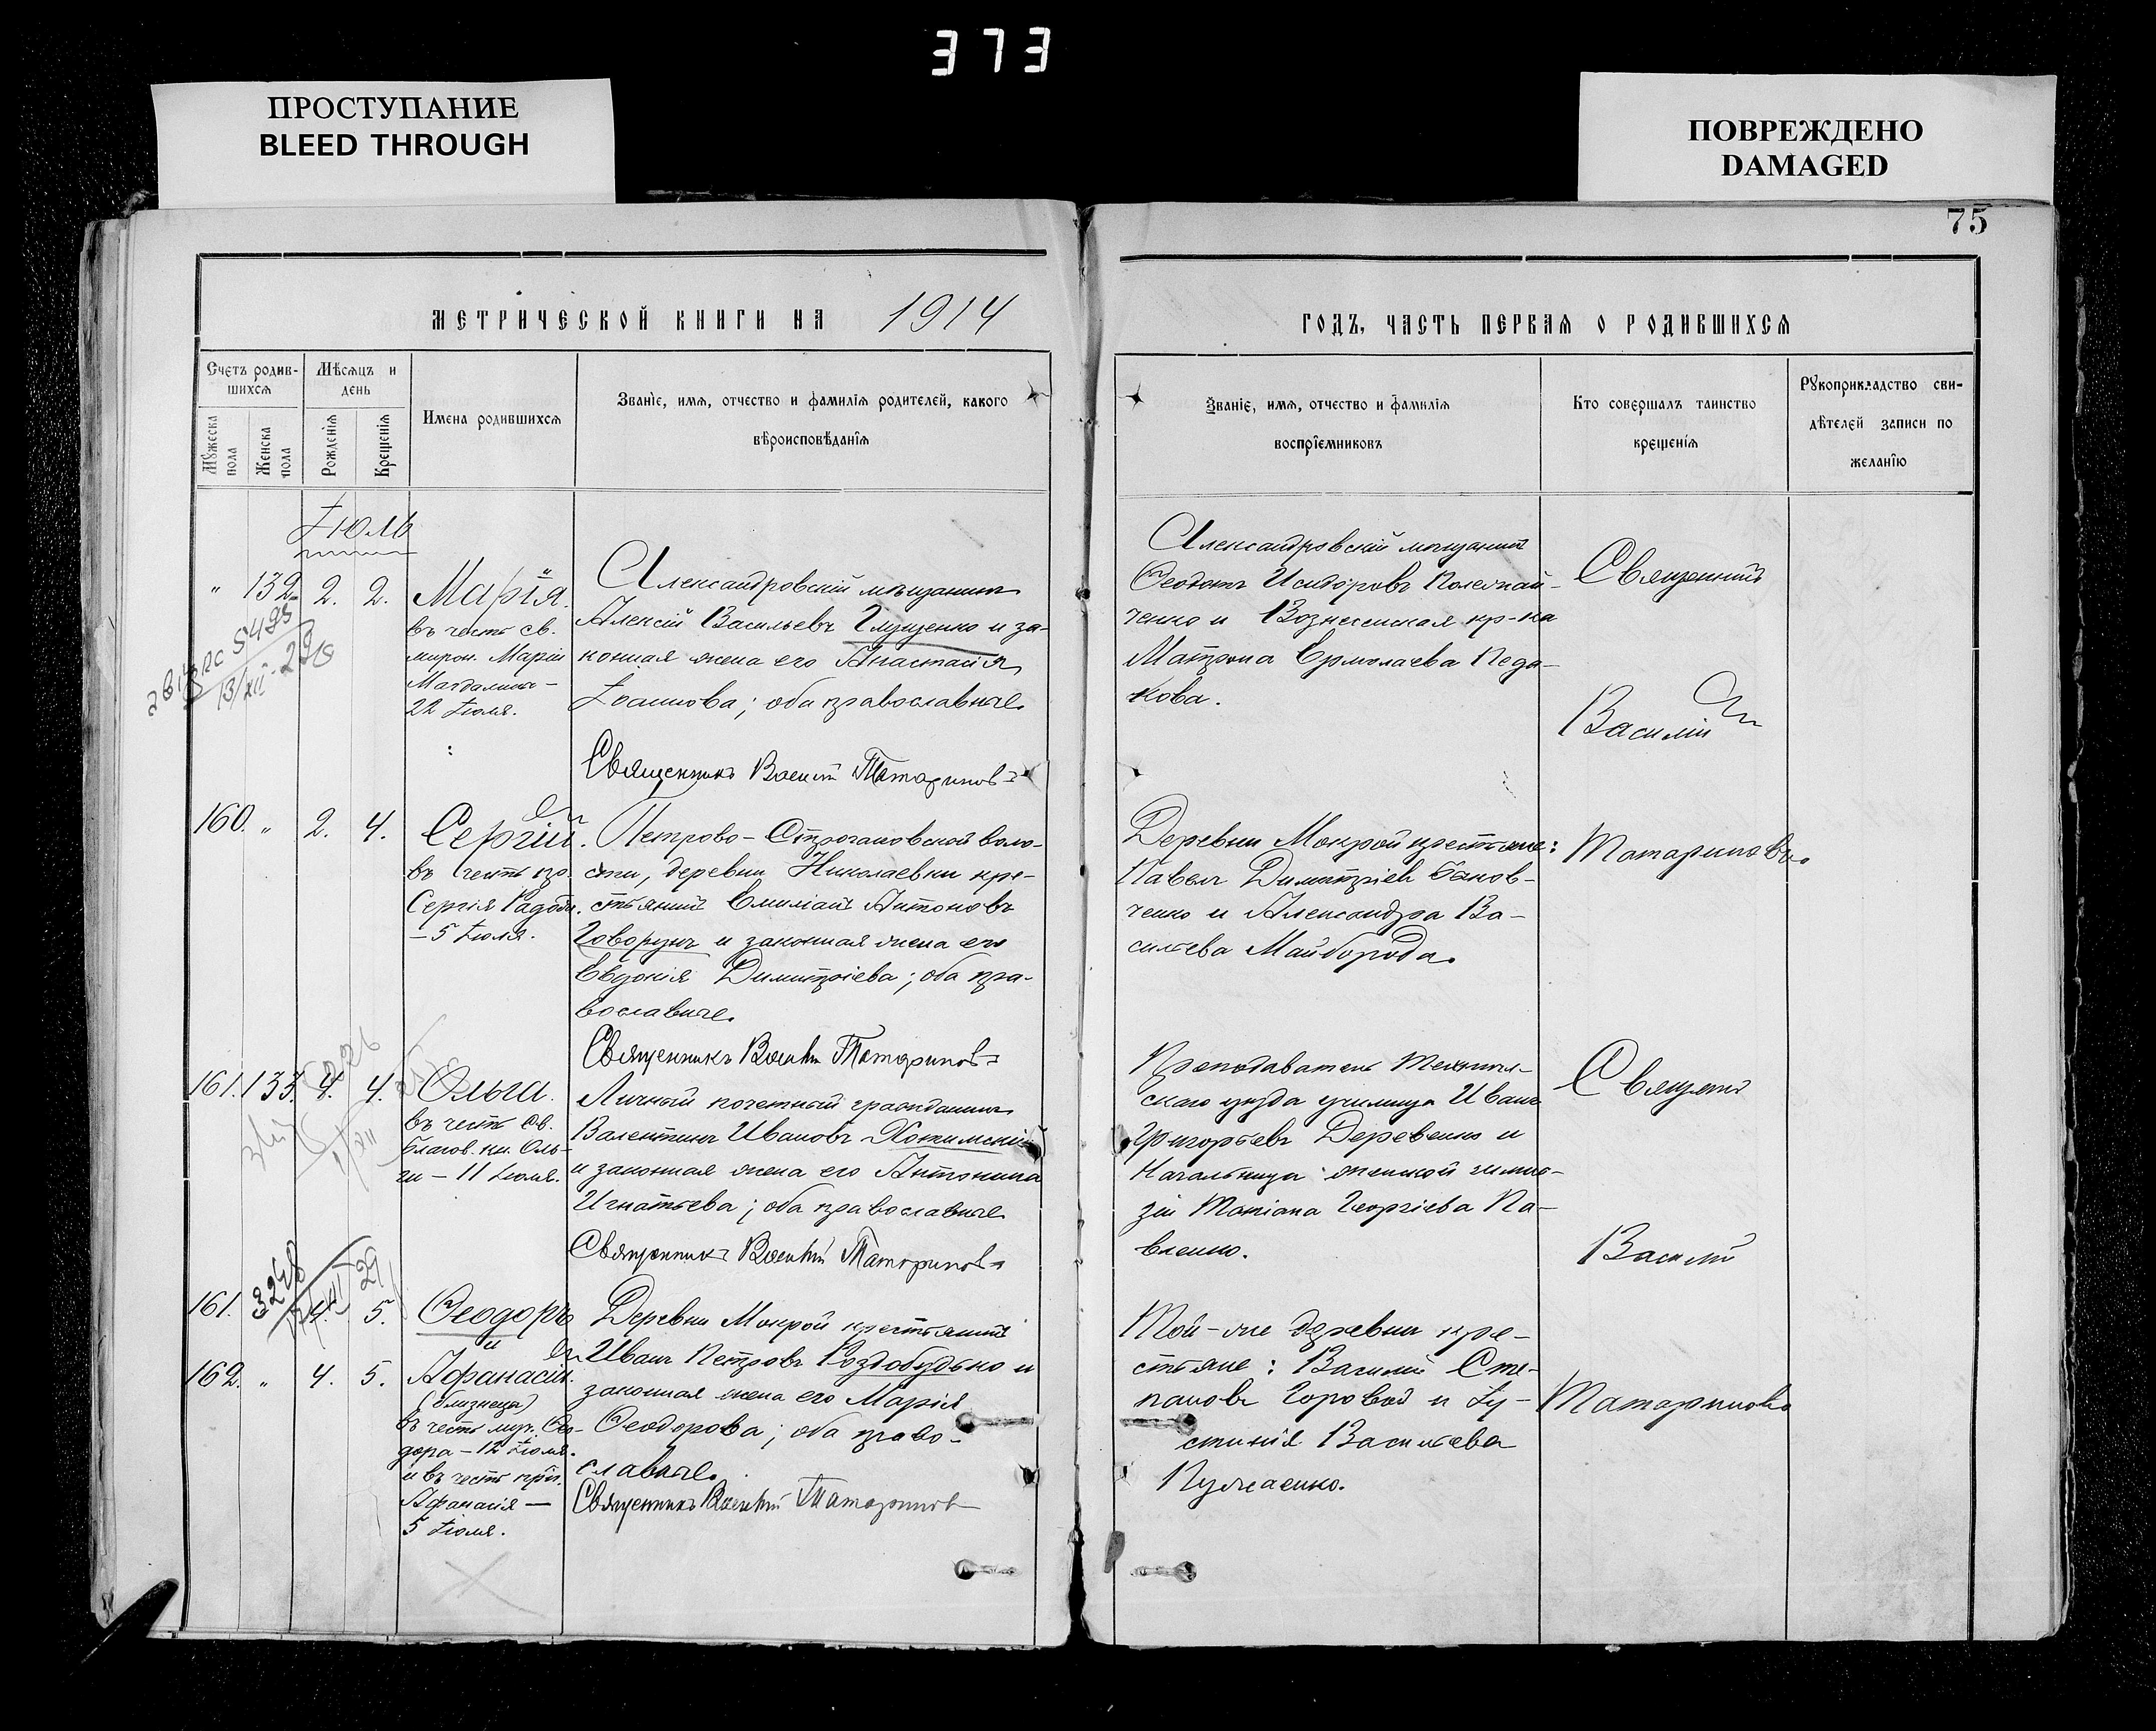 373
ПРОСТУПАНИЕ
BLEED THROUGH
ПОВРЕЖДЕНО
DAMAGED
75
МЕТРИЧЕСКОЙ КНИГИ НА 1914
ГОДЪ, ЧАСТЬ ПЕРВАЯ О РОДИВШИХСЯ
Счетъ родив-
шихся
Мѣсяцъ и
день
Мужеска
пола
Женска
пола
Рожденія
Крещенія
Имена родившихся
Званіе, имя, отчество и фамилія родителей, какого
вѣроисповѣданія
Званіе, имя, отчество и фамилія
воспріемниковъ
Кто совершалъ таинство
крещенія
Рукоприкладство сви-
дѣтелей записи по
желанію
Іюль
" 132. 2. 2.
Марія.
въ честь св.
мирон. Маріи
Магдалины –
22 Іюля.
Александровскій мѣщанинъ
Алексій Васильевъ Глущенко и за-
конная жена его Анастасія
Іоаннова; оба православные.
Священникъ Василій Татариновъ
Александровскій мѣщанинъ
Ѳеодотъ Исидоровъ
ченко и Вознесенская кр-ка
Матрона Ермолаева Педа-
кова.
Священникъ
Василій
160. " 2. 4.
Сергій.
въ честь пр.
Сергія Радон.
– 5 Іюля.
Петрово-Строгановской воло-
сти, деревни Николаевки кре-
стьянинъ Емиліанъ Антоновъ
Говорунъ и законная жена его
Евдокія Димитріева; оба пра-
вославные.
Священникъ Василій Татариновъ
Деревни Мокрой крестьяне:
Павелъ Димитріевъ Банов-
ченко и Александра Ва-
сильева Майборода.
Татариновъ.
161. 133. 4. 4.
Ольга.
въ честь св.
благов. кн. Оль-
ги – 11 Іюля.
Личный почетный гражданинъ
Валентинъ Ивановъ Хотимскій
и законная жена его Антонина
Игнатьева; оба православные
Священникъ Василій Татариновъ
Преподаватель
скаго уѣзда училища Иванъ
Григорьевъ Деревенко и
Начальница женской гимна-
зіи Татіана Георгіева Па-
вленко.
Священникъ
Василій
3248
161. 4. 5.
Ѳеодоръ
и
162. " 4. 5.
Аѳанасій.
(близнецы)
въ честь муч. Ѳео-
дора – 12 Іюля.
и въ честь прп.
Аѳанасія –
5 Іюля.
Деревни Мокрой крестьянинъ
Иванъ Петровъ Роздобудько и
законная жена его Марія
Ѳеодорова; оба право-
славные.
Священникъ Василій Татариновъ
Той-же деревни кре-
стьяне: Василій Сте-
пановъ Горовой и Іу-
стинія Васильева
Татариновъ